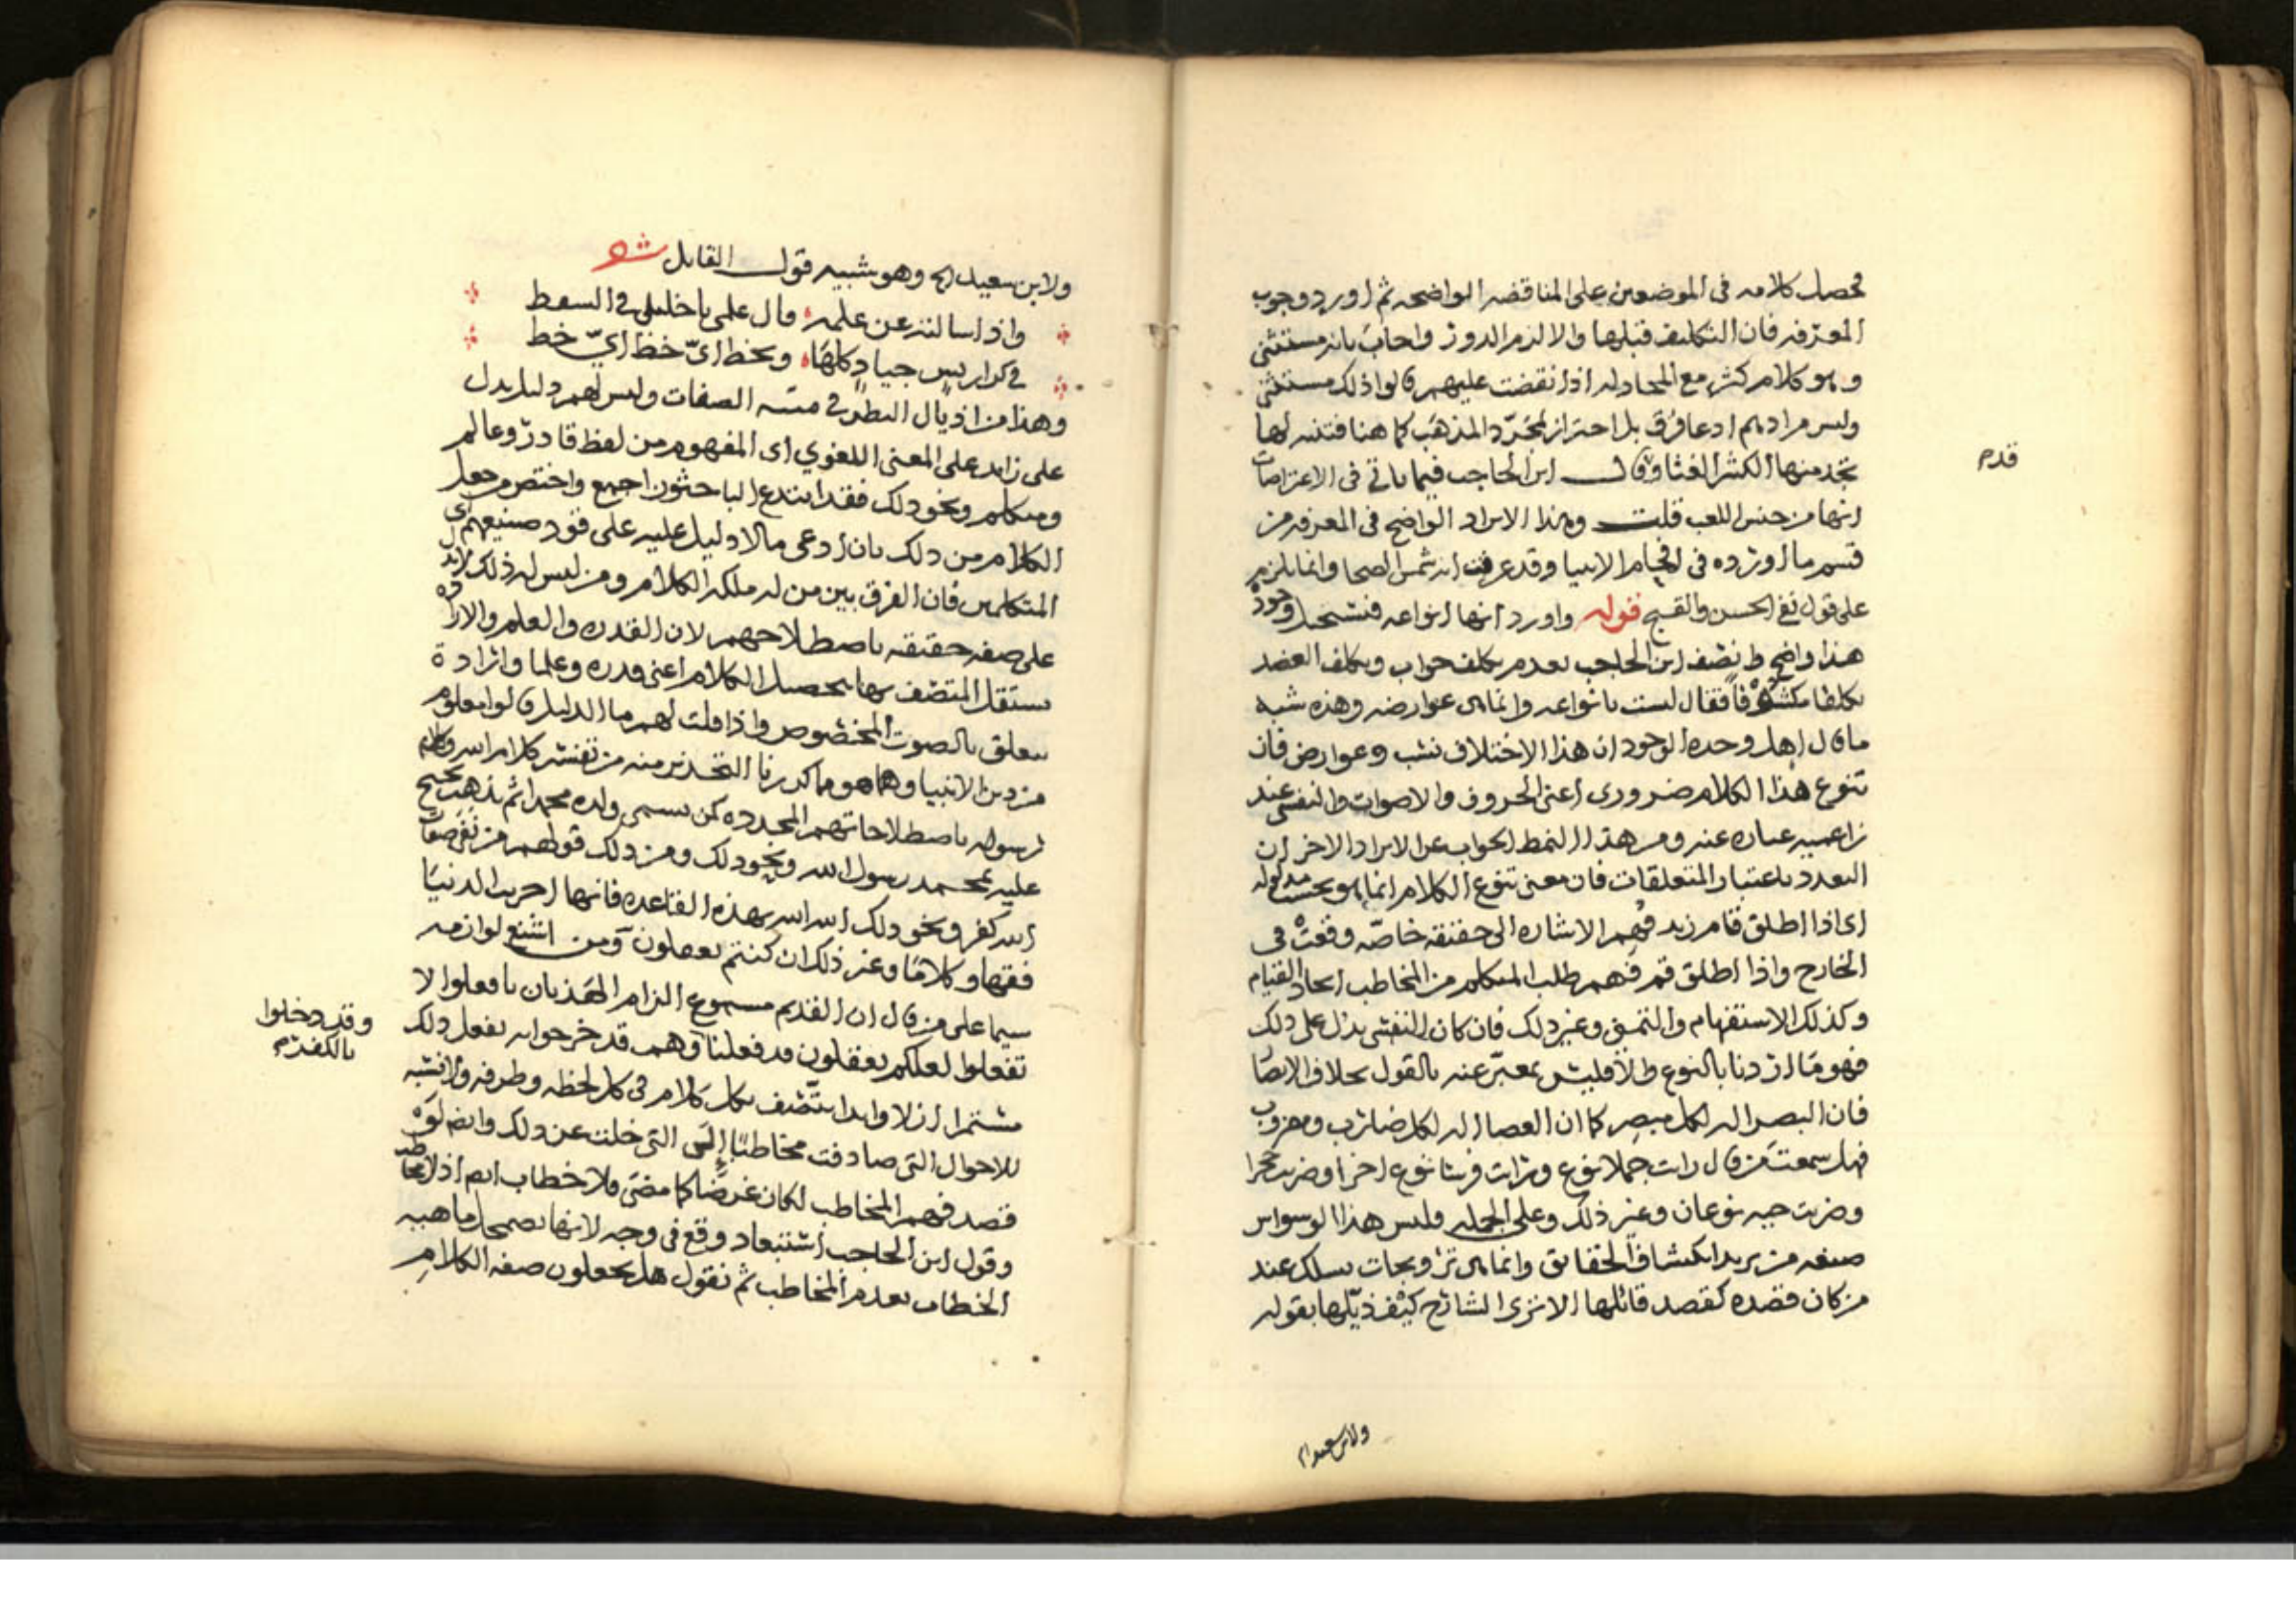 محصل كلامه فى الموضعين على المناقضه الواضحه ثم اورد وجوب
المعرفه فان التكليف قبلها والا لزم الدور واجاب بانه مستثنى
وهو كلام كثر مع المجادله اذا نقضت عليهم قالوا ذلك مستثنى
وليس مرادهم ادعا فرق بل احتراز لمجرد المذهب كما هنا فتنبه لها
تجد منها الكثير الغثا وقال ابن الحاجب فيما ياتي فى الاعتراضات
قدم
انها من جنس اللعب قلت وهذا الايراد الواضح فى المعرفه من
قسم ما اورده فى افحام الانبيا وقد عرفت انه شمس الضحا وانما يلزم
على قول نفي الحسن والقبح قوله واورد انها انواعه فتستحيل وجوده
هذا واضح وانصف ابن الحاجب بعدم تكلف جواب وتكلف العضد
تكلفا مكشوفا فقال ليست بانواعه وانما هى عوارضه وهذه شبه
ما قال اهل وحدة الوجود ان هذا الاختلاف نسب وعوارض فان
تنوع هذا الكلام ضرورى اعنى الحروف والاصوات والنفسى عند
زاعميه عباره عنه ومن هذا النمط الجواب عن الايراد الاخر ان
التعدد باعتبار المتعلقات فان معنى تنوع الكلام انما هو بحسب مدلوله
اى اذا اطلق قام زيد فهم الاشاره الى حقيقه خاصه وقعت فى
الخارج واذا اطلق قم فهم طلب المتكلم من المخاطب ايجاد القيام
وكذلك الاستفهام والتمنى وغير ذلك فان كان النفسى يدل على ذلك
فهو ما اردنا بالنوع والا فليس بمعبر عنه بالقول بخلاف الابصار
فان البصر اله لكل مبصر كما ان العصا اله لكل ضارب ومضروب
فهل سمعت من قال رايت جملا نوع ورايت فرسا نوع اخر او ضربت حجرا
وضربت حيه نوعان وغير ذلك وعلى الجمله فليس هذا الوسواس
صنعه من يريد انكشاف الحقايق وانما هى ترويجات تسلك عند
من كان قصده كقصد قائلها الا ترى الشارح كيف ذيلها بقوله
ولابن سعيد الخ
ولابن سعيد الخ وهو شبيه قول القايل شعر
واذا سالته عن علمه قال علمى يا خليلى فى السفط
فى كراريس جياد كلها وبخط اى خط اى خط
وهذا من اذيال النظر فى مسئله الصفات وليس لهم دليل يدل
على زايد على المعنى اللغوي اى المفهوم من لفظ قادر وعالم
ومتكلم ونحو ذلك فقد ابتدع الباحثون اجمع واختص من جعل
الكلام من ذلك بان ادعى ما لا دليل عليه على قود صنيعهم اى
المتكلمين فان الفرق بين من له ملكه الكلام ومن ليس له ذلك لا يدل
على صفه حقيقه باصطلاحهم لان القدره والعلم والاراده
يستقل المتصف بها بتحصيل الكلام اعنى قدره وعلما وارادة
تتعلق بالصوت المخصوص واذا قلت لهم ما الدليل قالوا معلوم
من دين الانبيا وها هو ما كررنا التحذير منه من تفسير كلام الله وكلام
رسوله باصطلاحاتهم المجدده كمن يسمى ولده محمدا ثم يذهب يحتج
عليه بمحمد رسول الله ونحو ذلك ومن ذلك قولهم من نفى صفات
الله كفر ونحو ذلك الله الله بهذه القاعده فانها اخربت الدنيا
فقها وكلاما وغير ذلك ان كنتم تعقلون ومن اشنع لوازمه
سيما على من قال ان القديم مسموع الزام الهذيان يا فعلوا لا
وقد دخلوا
بالكفدم
تفعلوا لعلكم تعقلون قد فعلنا وهب قد خرجوا به يفعل ذلك
مستمرا ازلا وابدا يتصف بكل كلام فى كل لحظه وطرفه ولا نسبه
للاحوال التى صادفت مخاطبا الى التى خلت عن ذلك وايضا لو
قصد فهم المخاطب لكان غرضا كما مضى ولا خطاب ايضا اذ لا مخاطب
وقول ابن الحاجب استبعاد وقع فى وجه لانها تضمحل ماهيه
الخطاب بعدم المخاطب ثم نقول هل يجعلون صفه الكلام